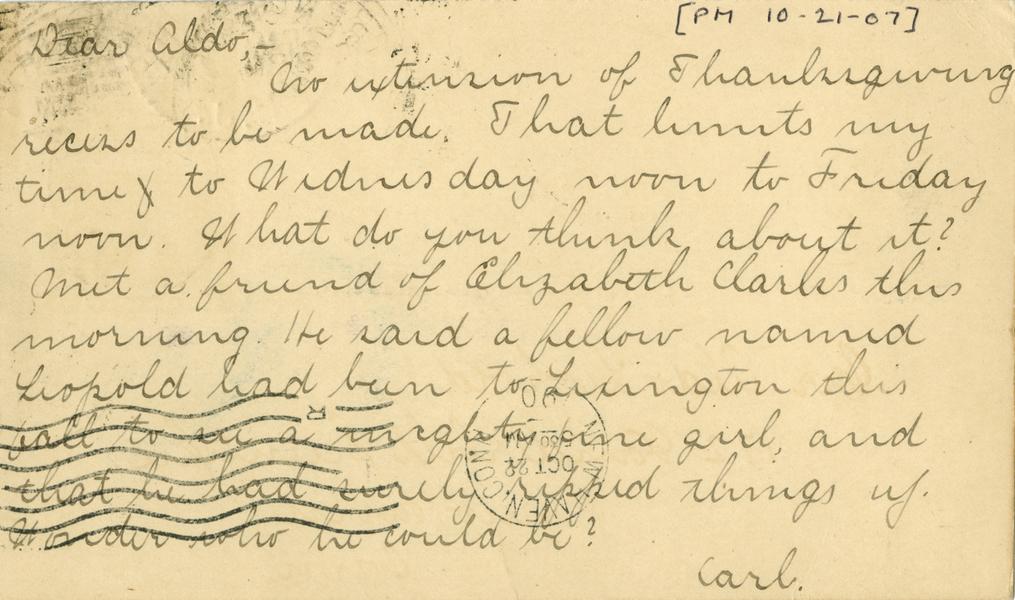 [PM 10-21-07]
Dear Aldo,-
No extension of Thanksgiving
recess to be made. That limits my
time to Wednesday noon to Friday
noon. What do you think about it?
Met a friend of Elizabeth Clarks this
morning. He said a fellow named
Leopold had been to Lexington this
fall to see a mighty fine girl, and
that he had surely ripped things up.
Wonder who he could be?
Carl.
NEW HAVEN CONN.
OCT 22
530 AM